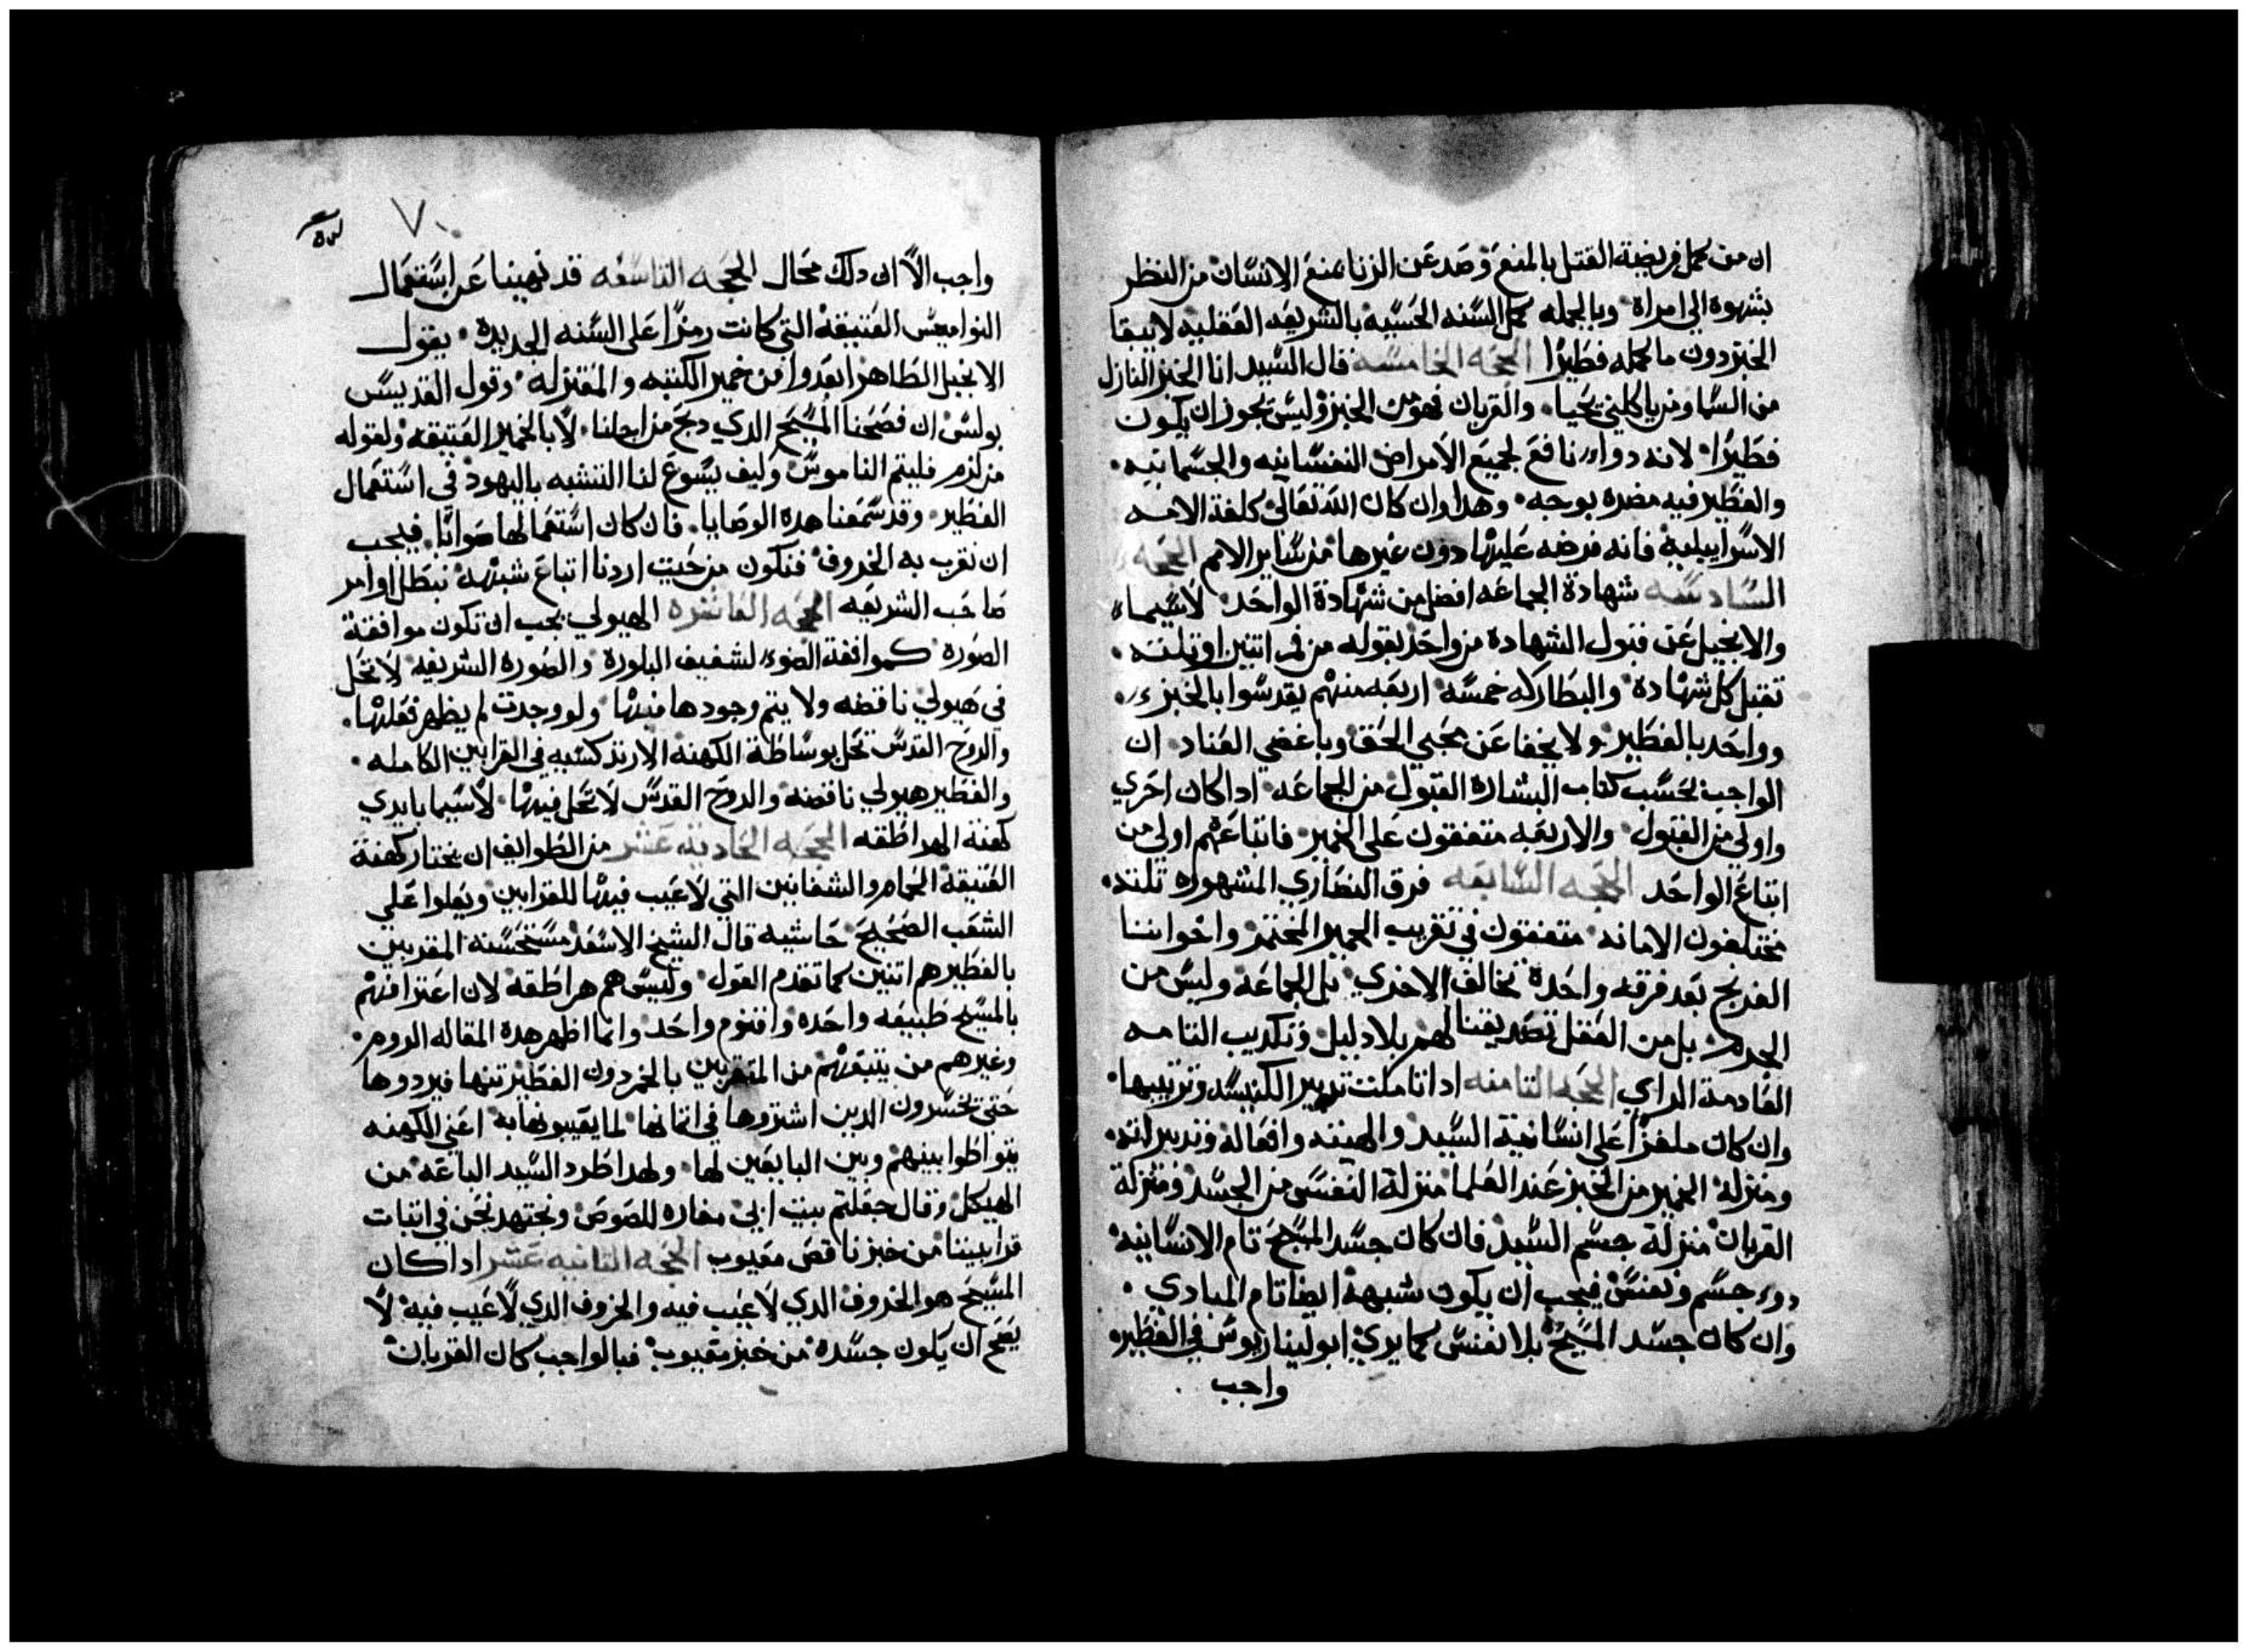 ان من كمل فريضة القتل بالمنع وصد عن الزنا بمنع الانسان من النظر
بشهوه الي امراة وبالجمله كمل السنه الحسيه بالشريعه العقليه لا يبقا
الخبز دون ما كمله فطيرا الحجه الخامسه قال السيد انا الخبز النازل
من السما ومن ياكلني يحيا والقربان فهو من الخبز وليس يجوز ان يكون
فطيرا لانه دواء نافع لجميع الامراض النفسانيه والجسمانيه
والفطير فيه مضره بوجه وهدا وان كان الله تعالي كلفة الامه
الاسراييلية فانه فرضه عليها دون غيرها من ساير الامم الحجه
السادسه شهادة الجماعه افضل من شهادة الواحد لاسيما
والانجيل عن قبول الشهادة من واحد بقوله من فم اتنين او تلته
تقبل كل شهادة والبطاركه خمسه اربعه منهم يقدسوا بالخبز
وواحد بالفطير ولا يخفا عن محبي الحق وباغضي العناد ان
الواجب بحسب كتاب البشارة القبول من الجماعه ادا كان احري
واولي من القبول والاربعه متفقون علي الخمير فاتباعهم اولي من
اتباع الواحد الحجه السابعه فرق النصاري المشهوره تلته
مختلفون الامانه متفقون في تقريب الخمير المختمر واخواننا
الفرنج بعد فرقه واحدة تخالف الاخري بل الجماعه وليس من
بل من العقل تصديقنا لهم بلا دليل وتكديب التامه
العادمة الراي الحجه التامنه ادا تاملت تدبير الكنيسه وترتيبها
وان كان ملغزا علي انسانية السيد والهيته وافعاله وتدبيراته
ومنزلة الخمير من الخبز عند العلما منزلة النفس من الجسد ومنزلة
القربان منزلة جسم السيد فان كان جسد المسيح تام الانسانيه
دو جسم ونفس فيجب ان يكون شبهه ايضا تام المبادي
وان كان جسد المسيح بلا نفس كما يري ابوليناريوس في الفطير
واجب
٧٠
واجب الا ان دلك محال الحجه التاسعه قد نهينا عن استعمال
النواميس العتيقة التي كانت رمزا علي السنه الجديده يقول
الانجيل الطاهر ابعدوا من خمير الكتبه والمعتزله وقول القديس
بولس ان فصحنا المسيح الدي دبح من اجلنا لا بالخمير العتيقه ولقوله
من لزم فليتم الناموس وكيف يسوغ لنا التشبه باليهود في استعمال
الفطير وقد سمعنا هده الوصايا فان كان استعمالها صوابا فيجب
ان نقرب به الخروف فنكون من حيث اردنا اتباع شبهه نبطل اوامر
صاحب الشريعه الحجه العاشره الهيولي يجب ان تكون موافقة
الصوره كموافقة الضوء لشفيف البلورة والصورة الشريفه لا تحل
في هيولي ناقصه ولا يتم وجودها منها ولو وجدت لم يظهر فعلها
والروح القدس تحل بوساطة الكهنة الارتدكسيه في القرابين الكامله
والفطير هيولي ناقصه والروح القدس لا تحل فيها لاسيما بايدي
كهنة الهراطقه الحجه الحادية عشر من الطوايف ان يختار كهنة
العتيقة الجامر والشفانين التي لا عيب فيها للقرابين ويعلوا علي
الشعب الصحيح حاشيه قال الشيخ الاسعد مستحسنه المقربين
بالفطير هم اتنين كما تقدم القول وليس هم هراطقه لان اعترافهم
بالمسيح طبيعه واحده واقنوم واحد وانما اظهر هده المقاله الروم
وغيرهم من يتبعهم من المتقربين بالخمر دون الفطير تنها فيردوها
حتي يخسرون الدين اشتروها في اتمانها لما يعيبونها به اعني الكهنه
يتواطوا بينهم وبين البايعين لها ولهدا طرد السيد الباعه من
الهيكل وقال جعلتم بيت ابي مغاره للصوص ونجتهد نحن في اتبات
قرابيننا من خبز ناقص معيوب الحجه التانيه عشر ادا كان
المسيح هو الخروف الدي لا عيب فيه والخروف الدي لا عيب فيه لا
يصح ان يكون جسده من خبز معيوب فبالواجب كان القربان